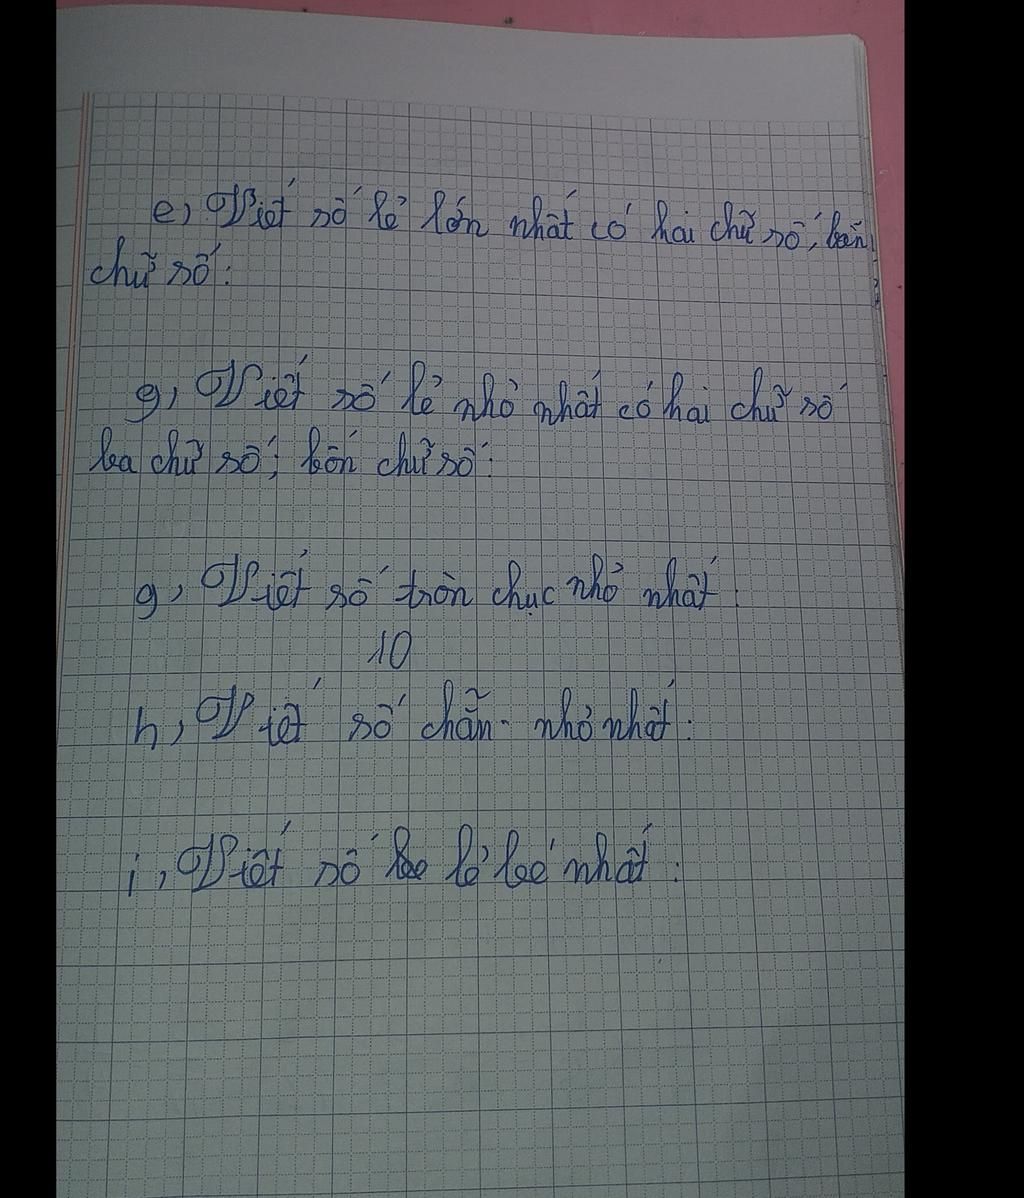 e, Viết số lẻ lớn nhất có hai chữ số, bốn
chữ số:
g, Viết số lẻ nhỏ nhất có hai chữ số
ba chữ số; bốn chữ số:
g, Viết số tròn chục nhỏ nhất:
10
h, Viết số chẵn nhỏ nhất:
i, Viết số lẻ bé nhất: